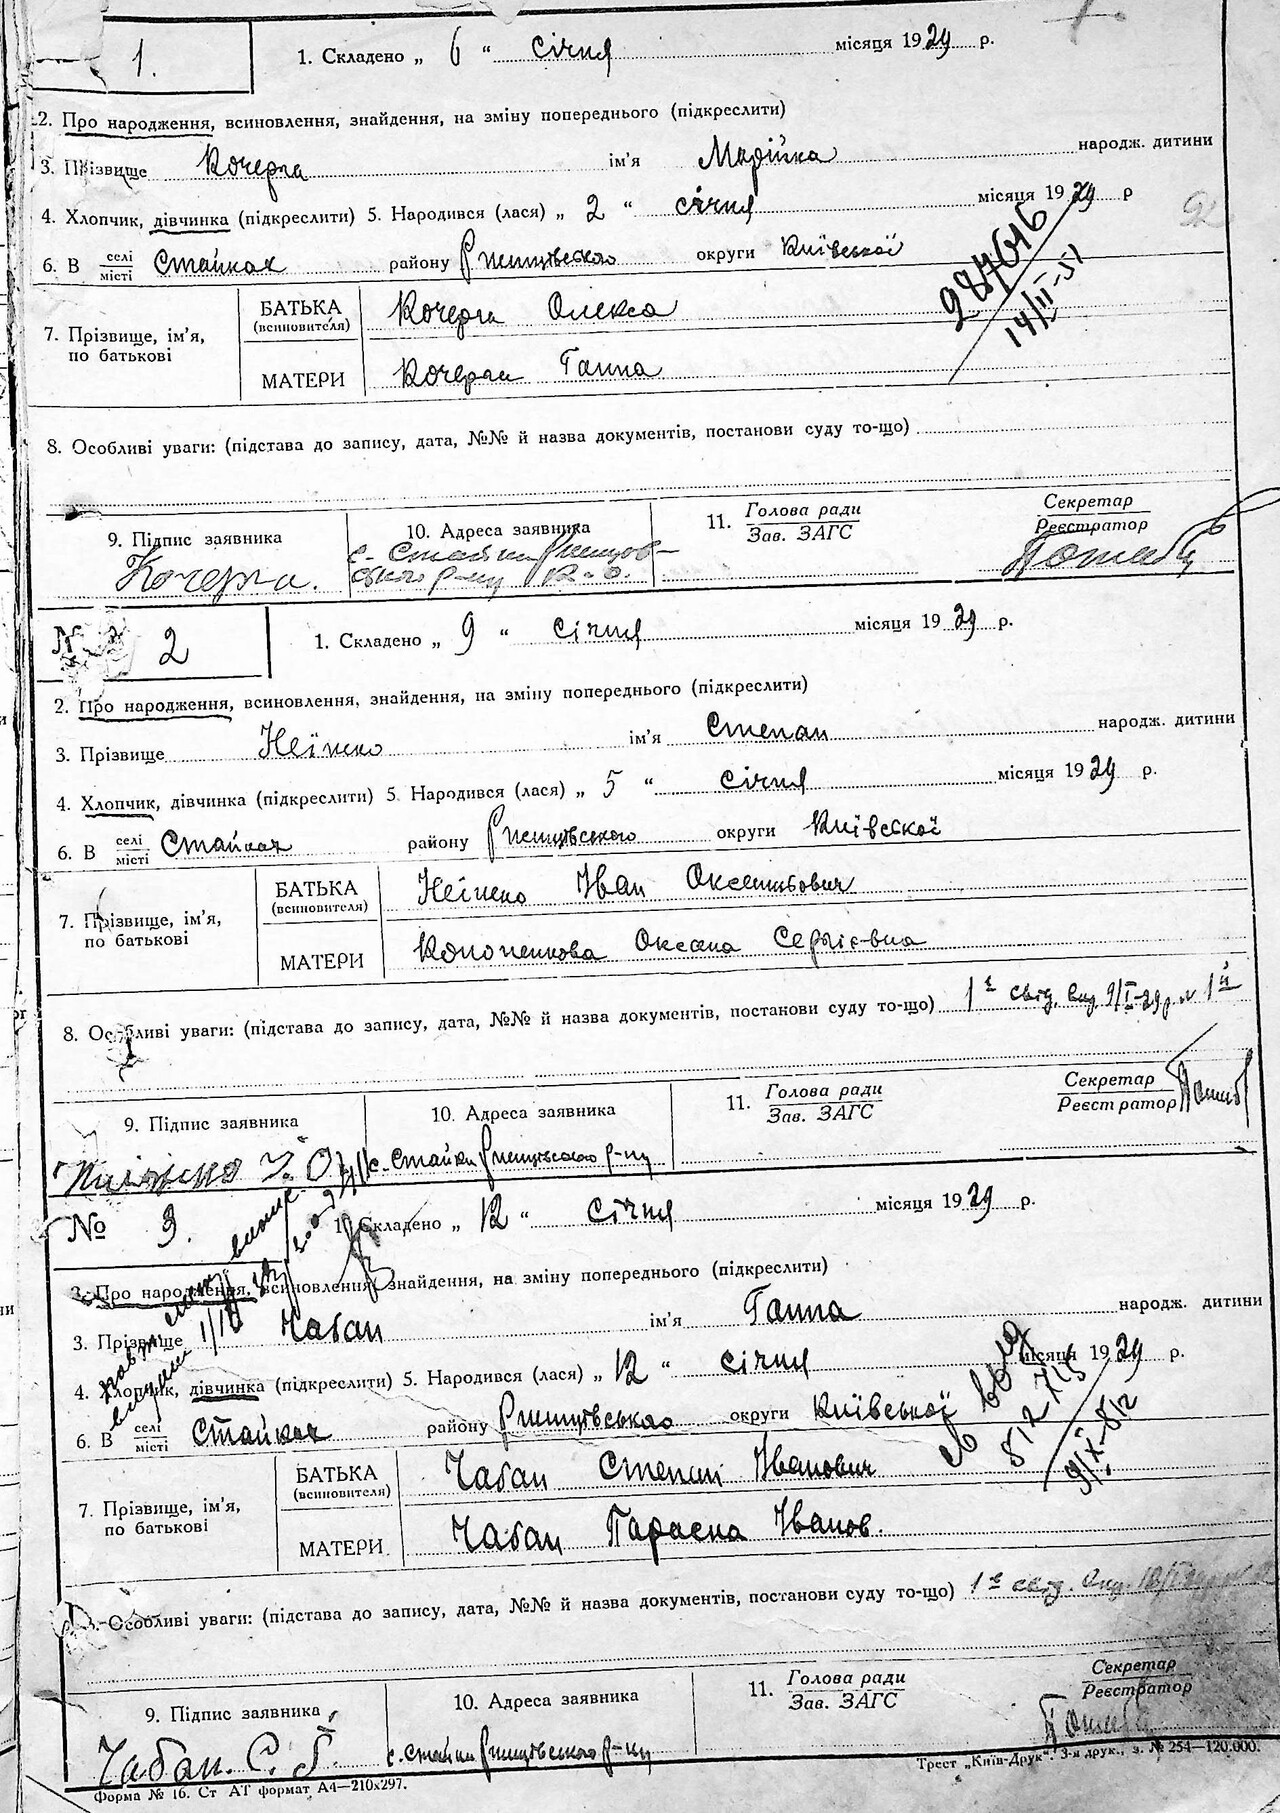 1.
1. Складено „ 6 “ січня місяця 1929 р.
2. Про народження, всиновлення, знайдення, на зміну попереднього (підкреслити)
3. Прізвище Кочерга ім'я Марійка народж. дитини
4. Хлопчик, дівчинка (підкреслити) 5. Народився (лася) „ 2 “ січня місяця 1929 р
6. В селі місті Стайках району Ржищівського округи Київської
287616
14/II-51
92
7. Прізвище, ім'я, по батькові
БАТЬКА (всиновителя) Кочерга Олекса
МАТЕРИ Кочерга Ганна
8. Особливі уваги: (підстава до запису, дата, №№ й назва документів, постанови суду то-що)
9. Підпис заявника 10. Адреса заявника 11. Голова ради Зав. ЗАГС Секретар Реєстратор
Кочерга. с. Стайки Ржищів-
ського р-ну К. о.
№ 2
1. Складено „ 9 “ січня місяця 1929 р.
2. Про народження, всиновлення, знайдення, на зміну попереднього (підкреслити)
3. Прізвище Неїжко ім'я Степан народж. дитини
4. Хлопчик, дівчинка (підкреслити) 5. Народився (лася) „ 5 “ січня місяця 1929 р.
6. В селі місті Стайках району Ржищівського округи Київської
7. Прізвище, ім'я, по батькові
БАТЬКА (всиновителя) Неїжко Іван Оксентьович
МАТЕРИ Кононенкова Оксана Сергієвна
8. Особливі уваги: (підстава до запису, дата, №№ й назва документів, постанови суду то-що) 1е свід. вид. 9/I-29р. №
9. Підпис заявника 10. Адреса заявника 11. Голова ради Зав. ЗАГС Секретар Реєстратор
с. Стайки Ржищівського р-ну
№ 3.
1. Складено „ 12 “ січня місяця 1929 р.
2. Про народження, всиновлення, знайдення, на зміну попереднього (підкреслити)
3. Прізвище Чабан ім'я Ганна народж. дитини
4. Хлопчик, дівчинка (підкреслити) 5. Народився (лася) „ 12 “ січня місяця 1929 р.
6. В селі місті Стайках району Ржищівського округи Київської
7. Прізвище, ім'я, по батькові
БАТЬКА (всиновителя) Чабан Степан Иванович
МАТЕРИ Чабан Параска Іванов.
8. Особливі уваги: (підстава до запису, дата, №№ й назва документів, постанови суду то-що) 1е свід. вид.
9. Підпис заявника 10. Адреса заявника 11. Голова ради Зав. ЗАГС Секретар Реєстратор
Чабан. С. с. Стайки Ржищівського р-ну
Форма № 16. Ст АТ формат А4—210x297. Трест „Київ-Друк“, 3-я друк., з. № 254—120.000.